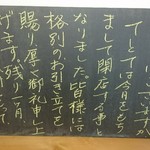 ございますが
てとては今月をもち
まして閉店する事と
なりました。皆様には
格別のお引き立を
賜り厚く御礼申し上
げます。残り一ヶ月